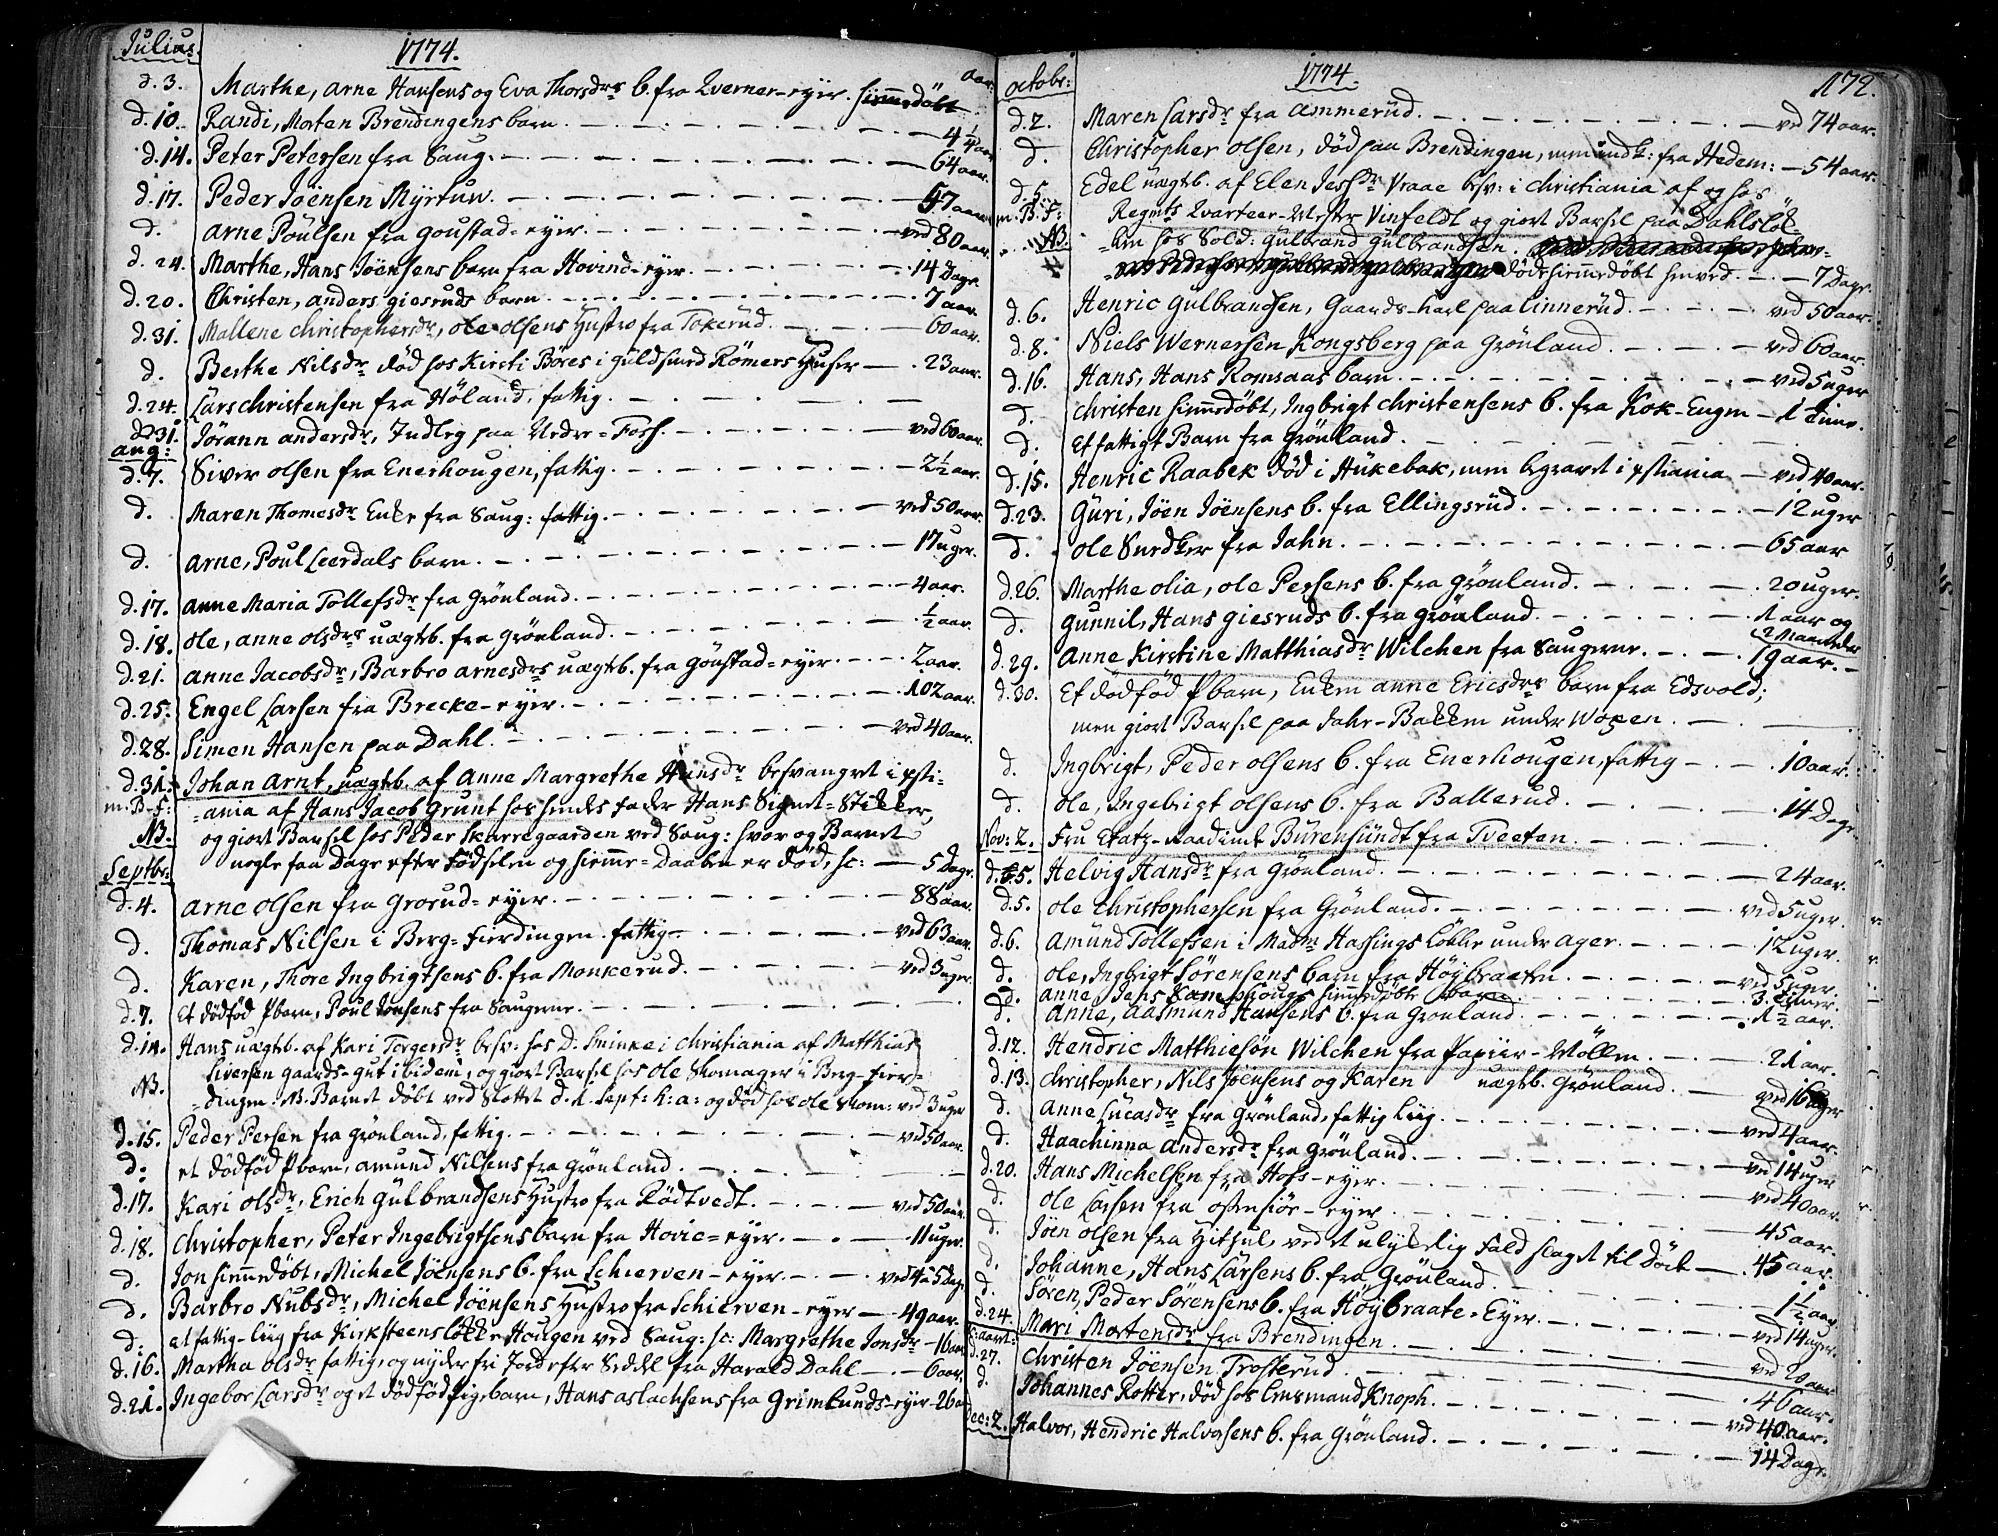 Julius. 1774. aar.
d. 3. Marthe, Arne Hansens og Eva Thorsdrs b. fra Qverner-eyer. hiemedöbt
d. 10. Randi, Morten Brendingens barn. 4 1/4 aar
d. 14. Peter Petersen fra Saug. 64 aar.
d. 17. Peder Jöensen Myrtuw. 57 aar
d. Arne Poulsen fra Goustad-eyer. ved 80 aar.
d. 24. Marthe, Hans Jöensens barn fra Hovind-eyer. 14 Dage.
d. 20. Christen, Anders Giesruds barn. 7 aar.
d. 31. Mallene Christophersdr, Ole Olsens Hustro fra Tokerud. 60 aar.
d. Berthe Nilsdr död hos Kirsti Böres i Guldsmed Römers Huser. 23 aar.
d. 24. Lars Christensen fra Höland, fattig.
d. 31. Jörann Andersdr, Indleg paa Neder-Foss. ved 60 aar.
aug:
d. 7. Siver Olsen fra Enerhougen, fattig. 2½ aar.
d. Maren Thomesdr Enke fra Saug: fattig. ved 50 aar.
d. Arne, Poul Leerdals barn. 17 uger.
d. 17. Anne Maria Tollefsdr fra Grönland. 4 aar.
d. 18. Ole, Anne Olsdrs uægtb. fra Grönland. ½ aar.
d. 21. Anne Jacobsdr, Barbro Arnesdrs uægtb. fra Göustad-eyer. 2 aar.
d. 25. Engel Larsen fra Brecke-eyer. 102 aar.
d. 28. Simen Hansen paa Dahl. ved 40 aar.
d. 31. Johan Arnt, uægtb. af Anne Margrethe Hansdr besvangret i Xsti-
m. B. F: -ania af Hans Jacob Grunt hos hendes fader Hans Signet-Stikker,
NB. og giort Barsel hos Peder Skarregaarden ved Saug: hvor og Barnet
nogle faa Dage efter Födselen og hieme-Daaben er död, sc: 5 Dage.
Septbr:
d. 4. Arne Olsen fra Grorud-eyer. 88 aar.
d. Thomas Nilsen i Berg-Fierdingen fattig. ved 63 aar.
d. Karen, Thore Ingbrigtsens b. fra Monkerud. ved 3 uger
d. 7. Et dödföd Pbarn, Poul Jonsens fra Saugerne.
d. 11. Hans uægtb. af Kari Torgersdr besv: hos D: Meinke i Christiania af Matthias
Siversen gaards-gut ibidem, og giort Barsel hos Ole Skomager i Berg-Fier-
NB. -dingen. NB. Barnet döbt ved Slottet d. 1. Sept: h: a: og död hos Ole Skom: ved 3 uger
d. 15. Peder Persen fra Grönland, fattig. ved 50 aar.
d. et dödföd Pbarn, Amund Nilsens fra Grönland.
d. 17. Kari Olsdr, Erich Gulbrandsens Hustro fra Rödtvedt. ved 50 aar.
d. 18. Christopher, Peter Ingebrigtsens barn fra Hovie-eyer. 11 uger.
d. Jon hiemedöbt, Michel Jöensens b. fra Schierven-eyer. ved 4 a 5 Dag.
d. Barbro Nubsdr, Michel Jöensens Hustro fra Schierven-eyer 49 aar.
d. et fattig-liig fra Kirksteenslökke Hougen ved Saug: sc: Margrethe Jonsdr 16 aar
d. 16. Martha Olsdr fattig, og nyder fri Jord efter Seddel fra Harald Dahl. 6 aar.
d. 21. Ingebor Larsdr og et dödföd Pigebarn, Hans Aslachsens fra Grimlunds-eyer 26 aar
octobr: 1774. 172.
d. 2. Maren Larsdr fra Ammerud. ved 74 aar.
d. Christopher Olsen, död paa Brendingen, men indk: fra Hedem: 54 aar.
d. 5. Edel uægtb. af Elen Jessdr Vraae besv: i Christiania af og hos
m. B. F: Regmts Qvarteer-Mester Vinfeldt og giort Barsel paa Dahlslök-
NB. -ken hos Sold: Gulbrand Gulbrandsen.
döde hiemedöbt henved. 7 Dage
d. 6. Henric Gulbrandsen, Gaards-karl paa Linnerud. ved 50 aar.
d. 8. Niels Wernersen Kongsberg paa Grönland. ved 60 aar.
d. 16. Hans, Hans Romsaas barn. ved 5 uger
d. Christen hiemedöbt, Ingbrigt Christensens b. fra Kok-Engen 1 Time.
d. Et fattigt Barn fra Grönland.
d. 15. Henric Raabek död i Hukebak, men begravet i Xstiania ved 40 aar.
d. 23. Guri, Jöen Jöensens b. fra Ellingsrud. 12 uger
d. Ole Snedker fra Jahn. 65 aar
d. 26. Marthe Olia, Ole Persens b. fra Grönland. 20 uger.
d. Gunnil, Hans Giesruds b. fra Grönland. 1 aar og
2 Maaneder
d. 29. Anne Kirstine Matthiasdr Wilchen fra Saugerne. 19 aar.
d. 30. Et dödföd Pbarn, Enken Anne Ericsdrs barn fra Edsvold;
men giort Barsel paa Jahr-Bakken under Woxen.
d. Ingbrigt, Peder Olsens b. fra Enerhougen, fattig 10 aar.
d. Ole, Ingebrigt Olsens b. fra Ballerud. 14 Dage.
Nov: 2. Fru Etatz-Raadinde Bürensündt fra Tveeten.
d. 5. Helvig Hansdr fra Grönland. 24 aar.
d. 5. Ole Christophersen fra Grönland. ved 5 uger.
d. 6. Amund Tollefsen i Madme Hassings Lökke under Ager. 12 uger.
d. Ole, Ingbrigt Sörensens barn fra Höybraaten. ved 5 uger.
d. Anne, Jens Kamphougs hiemedöbte barn. 3 Timer.
d. Anne, Aasmund Hansens b. fra Grönland. 1½ aar.
d. 12. Hendric Matthiesön Wilchen fra Papiir-Möllen. 21 aar.
d. 13. Christopher, Nils Jöensens og Karen uægtb. Grönland. ved 16 uger
d. Anne Lucasdr fra Grönland, fattig Liig. ved 4 aar.
d. Haachinna Andersdr fra Grönland. ved 14 uger
d. 20. Hans Michelsen fra Hofs-eyer. ved 40 aar.
d. Ole Larsen fra Östensiör-eyer. 45 aar.
d. Jöen Olsen fra Hitsul, ved et ulykelig Fald slaget til Döde 45 aar.
d. Johanne, Hans Larsens b. fra Grönland. 1½ aar
d. Sören, Peder Sörensens b. fra Höybraate-Eyer. ved 14 uger.
d. 24. Mari Mortensdr fra Brendingen. ved 20 aar
d. 27. Christen Jöensen Trosterud. 46 aar.
d. Johannes Rotter, död hos Lensmand Knoph. ved 40 aar.
Dec: 2. Halvor, Hendric Halvorsens b. fra Grönland. 14 Dage.